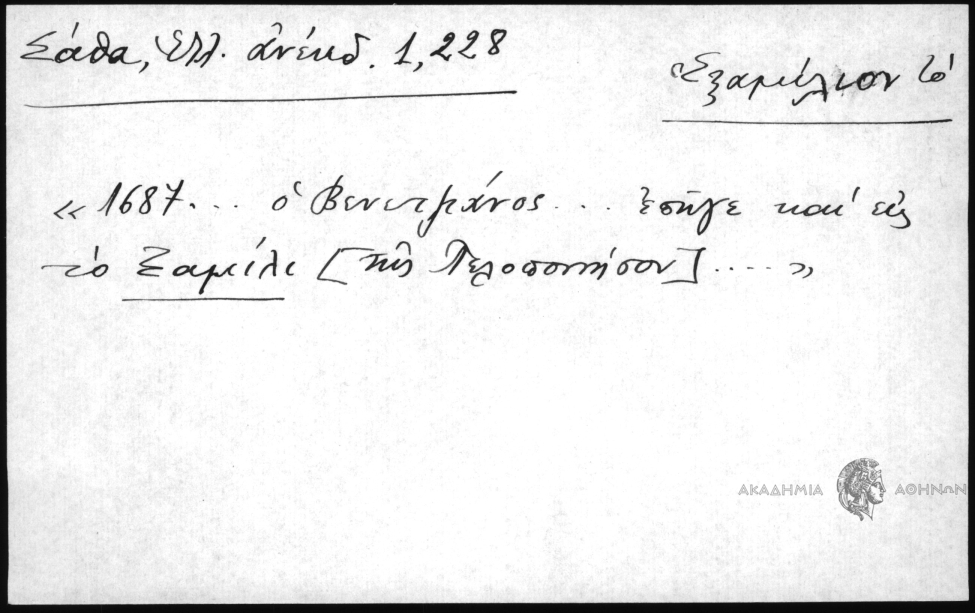 Σάθα, Ἑλλ. ἀνέκδ. 1,228
Ἑξαμίλιον τό
« 1687. ... ὁ Βενετζιάνος ... ἐπῆγε καὶ εἰς
τὸ Ξαμίλι [τῆς Πελοποννήσου] ..... »
ΑΚΑΔΗΜΙΑ ΑΘΗΝΩΝ